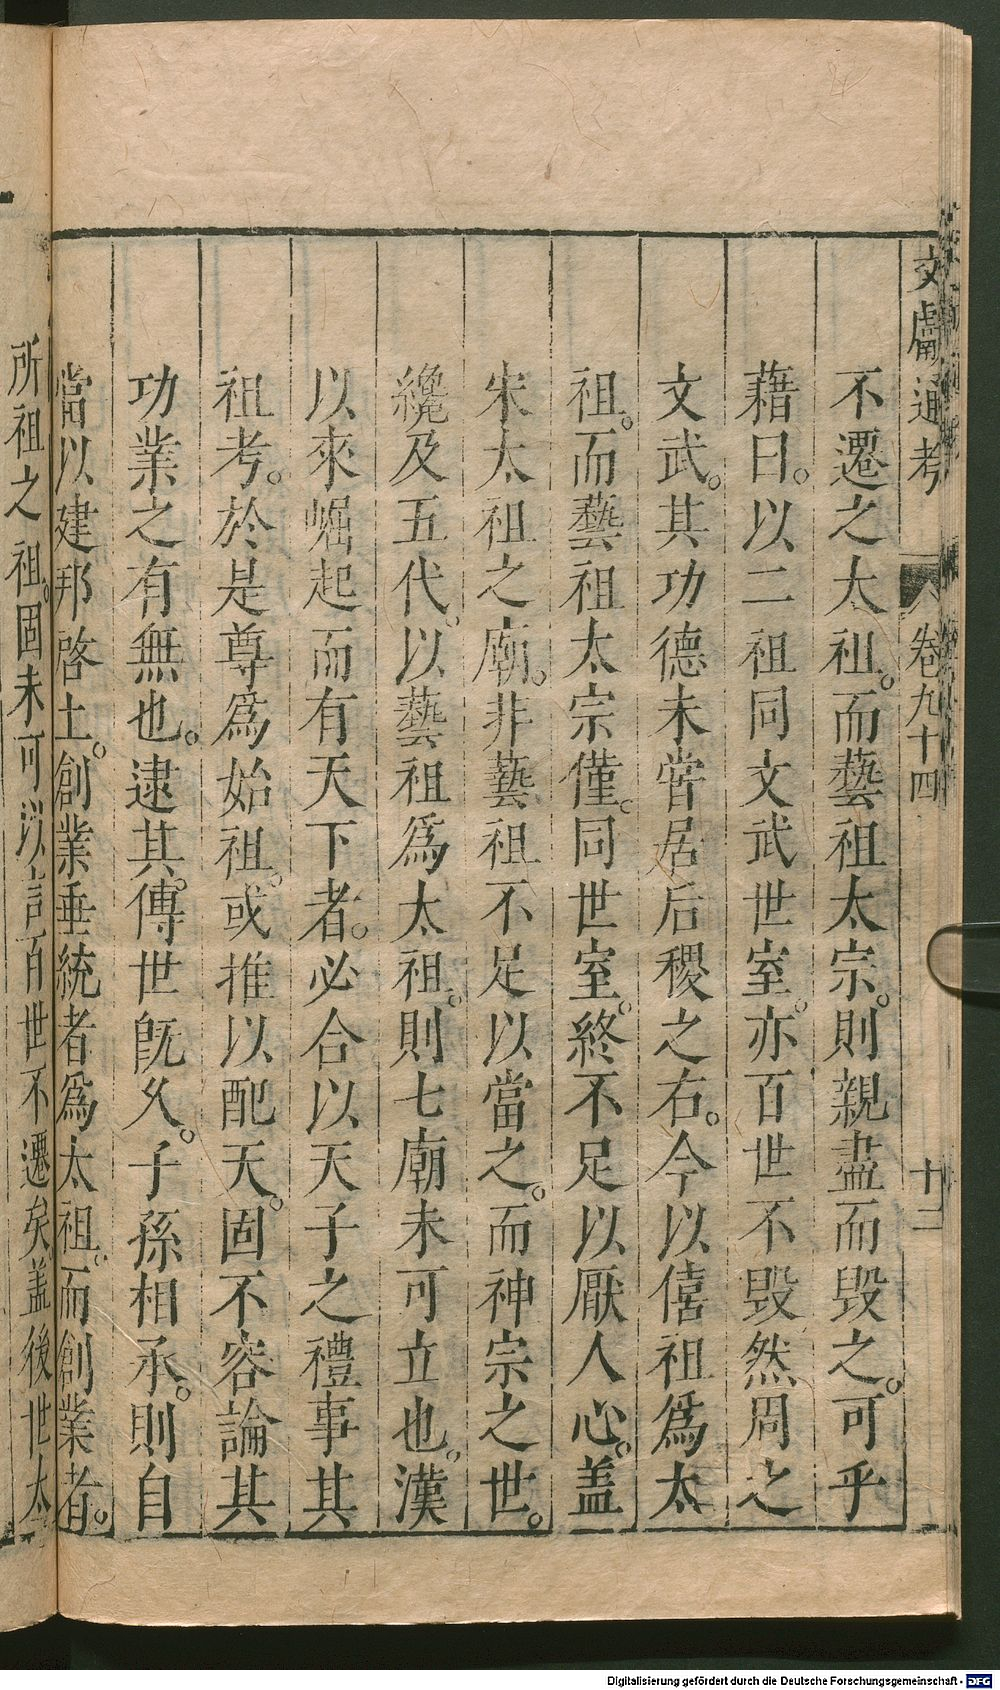 文獻通考　卷九十四　十三
不遷之大祖。而藝祖太宗。則親盡而毀之。可乎
藉曰。以二祖同文武世室。亦百世不毀然周之
文武。其功德未甞居后稷之右。今以僖祖爲太
祖。而藝祖太宗僅。同世室。終不足以厭人心。盖
宋太祖之廟。非藝祖不足以當之。而神宗之世。
纔及五代。以藝祖爲太祖。則七廟未可立也。漢
以來崛起而有天下者。必合以天子之禮事其
祖考。於是尊爲始祖。或推以配天。固不容論其
功業之有無也。逮其。傳世旣乆。子孫相承。則自
當以建邦啓土。創業垂統者爲太祖。而創業者。
所祖之祖。固未可以言百世不遷矣盖後世太
Digitalisierung gefördert durch die Deutsche Forschungsgemeinschaft - DFG